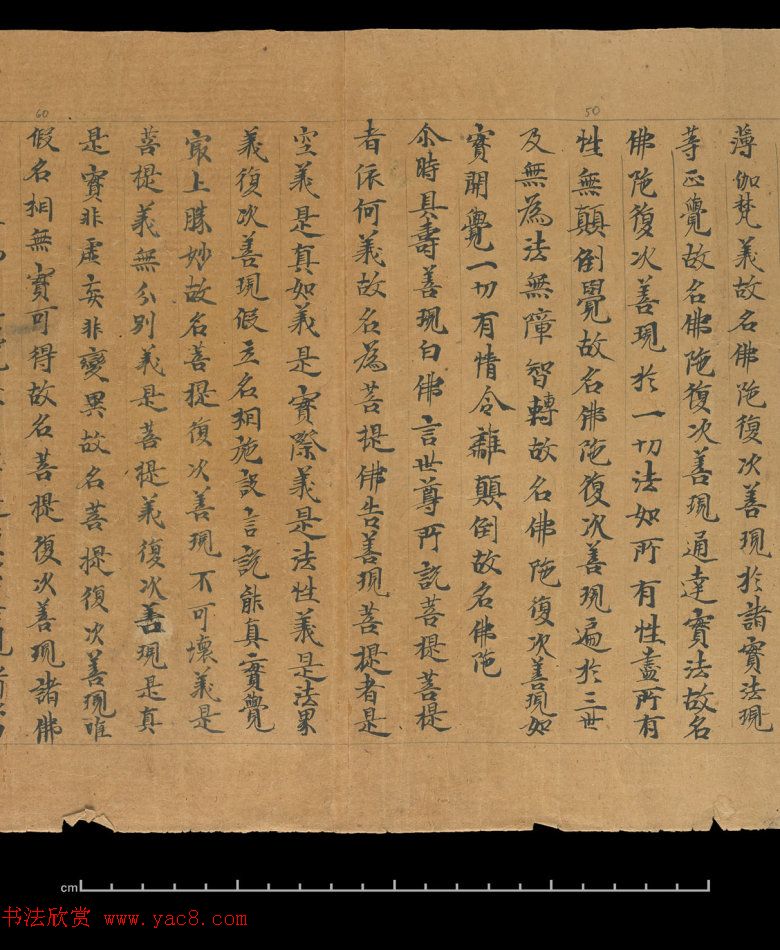 50
60
薄伽梵義故名佛陁復次善現於諸實法現
等正覺故名佛陁復次善現通達實法故名
佛陁復次善現於一切法如所有性盡所有
性無顛倒覺故名佛陁復次善現遍於三世
及無為法無障智轉故名佛陁復次善現如
實開覺一切有情令離顛倒故名佛陁
尒時具壽善現白佛言世尊所說菩提菩提
者依何義故名為菩提佛告善現菩提者是
空義是真如義是實際義是法性義是法界
義復次善現假立名相施設言說能真實覺
㝡上勝妙故名菩提復次善現不可壞義是
菩提義無分別義是菩提義復次善現是真
是實非虛妄非變異故名菩提復次善現唯
假名相無實可得故名菩提復次善現諸佛
cm
书法欣赏 www.yac8.com